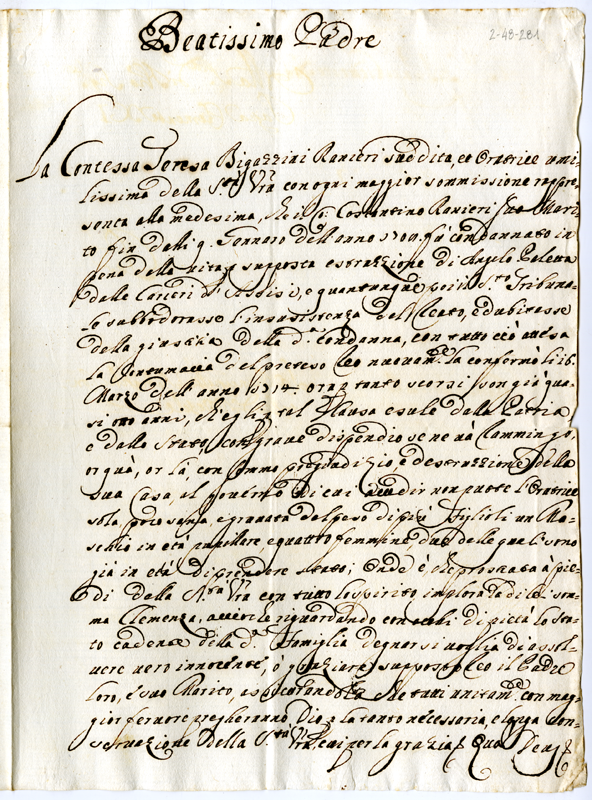 2-48-281
Beatissimo Padre
La Contessa Teresa Bigazzini Ranieri suddita, et Oratrice umi-
lissima della S.tà V̄ra con ogni maggior sommissione rappre-
senta alla medesima, che il Costantino Ranieri suo Mari-
to fin dalli 9. Gennaro dell'anno 1709. fù condannato in
pena della vita p supposta estrazzione di Angelo
dalle Carceri d'Assisi, e quantunque poi il S.to Tribuna-
le subbodorasse l'insussistenza del Reato, e dubitasse
della giustizia della d.a Condanna, con tutto ciò attesa
la Contumacia del preteso Reo nuovam.te la confermò li 16.
Marzo dell'anno 1714. or p tanto scorsi son già qua-
si otto anni, ch'egli p tal Causa esule dalla Patria
e dallo Stato, con grave dispendio se ne và Rammingo,
or quà, or là, con sommo pregiudizio, e destruzzione della
sua Casa, al governo di cui accudir non puote l'Oratrice
sola, giovane, e gravata del peso di più Figlioli un Ma-
schio in età pupillare, e quattro femmine, due delle quali sono
già in età di prendere stato; Onde è, che prostrata à pie-
di della S.tà V̄ra con tutto lo spirito implora da di lei som-
ma Clemenza, acciò che riguardando con occhi di pietà lo sta-
to cadente della d.a Famiglia degnar si voglia di assol-
vere vero innocente, ò graziare supposto Reo il Padre
loro, e suo Marito, assicurandola che tutti unitam.te con mag-
gior fervore pregheranno Dio p la tanto necessaria, e lunga con-
servazione della S.tà V̄ra, e